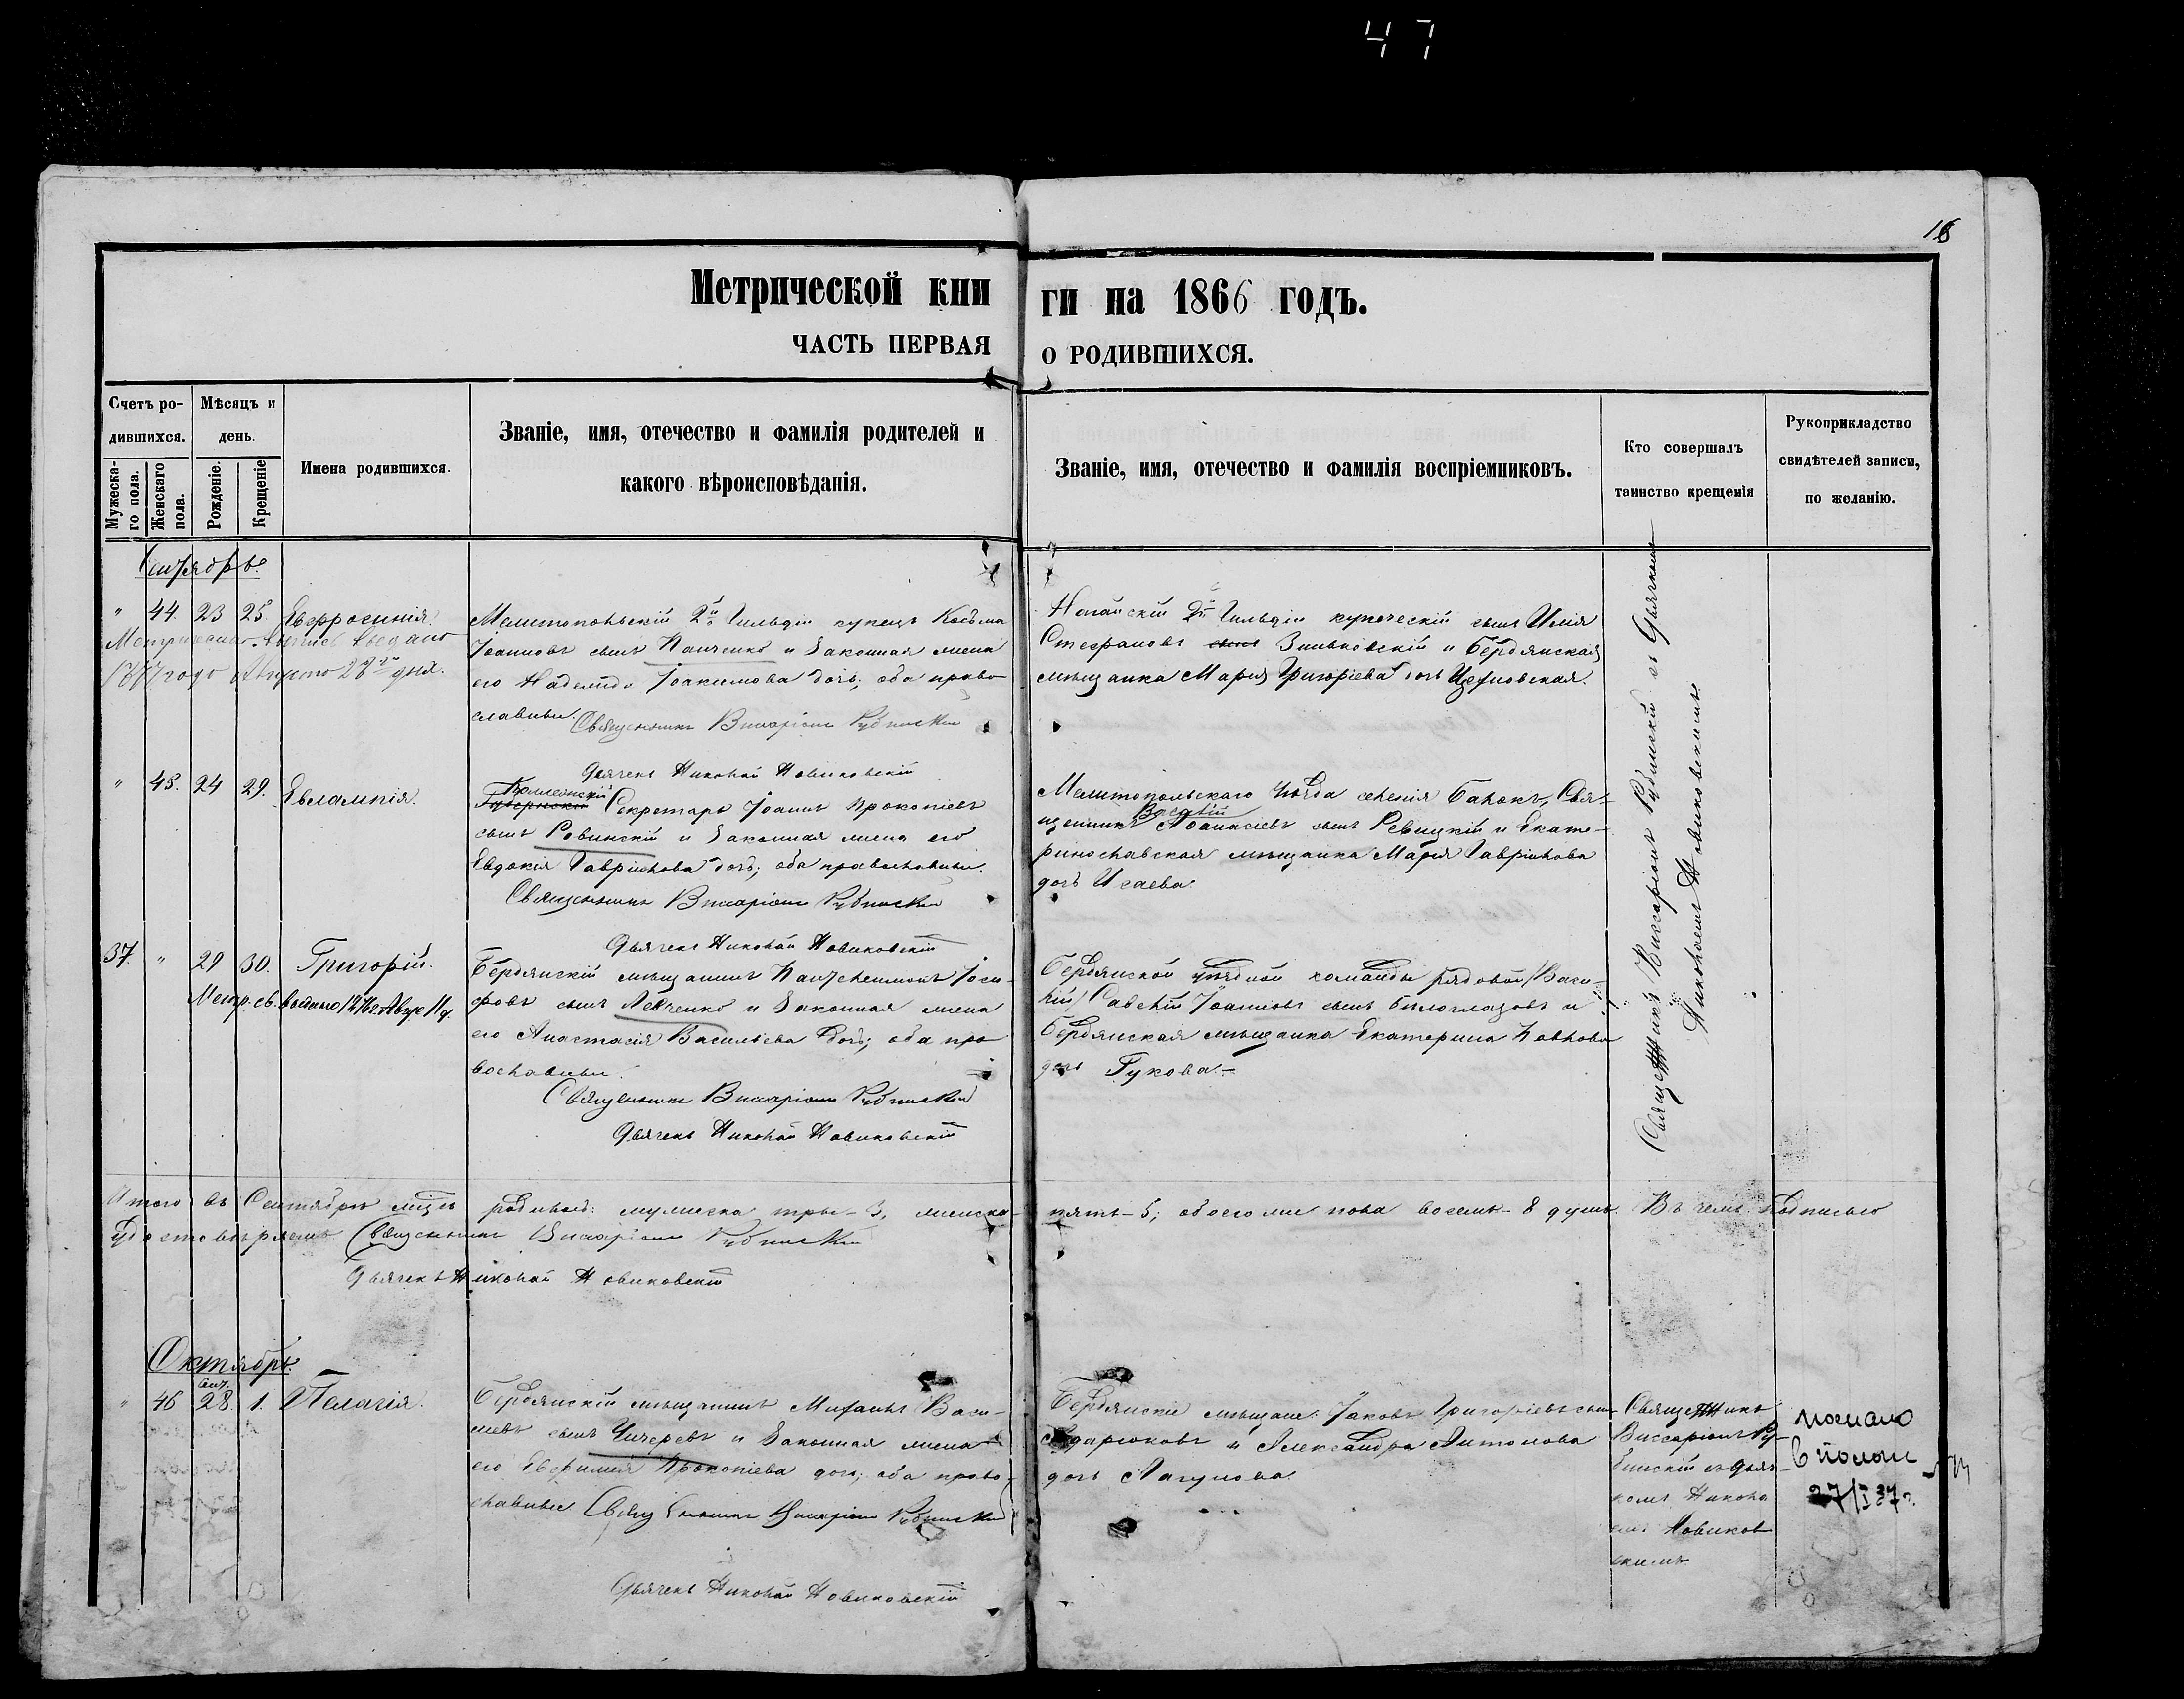 47
18
Метрической кни
ги на 1866 годъ.
ЧАСТЬ ПЕРВАЯ
О РОДИВШИХСЯ.
Счетъ ро-
дившихся.
Мужеска-
го пола.
Женскаго
пола.
Мѣсяцъ и
день.
Рожденіе.
Крещеніе
Имена родившихся.
Званіе, имя, отечество и фамилія родителей и
какого вѣроисповѣданія.
Званіе, имя, отечество и фамилія воспріемниковъ.
Кто совершалъ
таинство крещенія
Рукоприкладство
свидѣтелей записи,
по желанію.
" 44. 23 25. Евфросинія.
Мелитопольскій 2й Гильдіи купецъ Косьма
Іоанновъ сынъ Панченко и законная жена
его Надежда Іоакимова дочь; оба право
славные.
Священникъ Виссаріонъ Рубинскій
Дьячекъ Николай Новиковскій
Ногайскій 2й Гильдіи купеческій сынъ Илія
Стефановъ сынъ Зиньковскій и Бердянская
мѣщанка Марія Григоріева дочь
" 45. 24 29. Евлампія.
Коллежскій
Губернскій Секретарь Іоаннъ Прокопіевъ
сынъ Ровинскій и законная жена его
Евдокія Гавріилова дочь; оба православные.
Священникъ Виссаріонъ Рубинскій
Дьячекъ Николай Новиковскій
Мелитопольскаго Уѣзда селенія Балокъ, Свя-
щенникъ Аѳанасіевъ сынъ Ревицкій и Екате-
ринославская мѣщанка Марія Гавріилова
дочь Исаева.
37. " 29 30. Григорій.
Метр. св. выдано 1876 г. Авг. 11 д.
Бердянскій мѣщанинъ Пантелеимонъ Іоси-
фовъ сынъ Левченко и законная жена
его Анастасія Васильева дочь; оба пра
вославные.
Священникъ Виссаріонъ Рубинскій
Дьячекъ Николай Новиковскій
Бердянской уѣздной команды рядовой (Васи-
лій) Савелій Іоанновъ сынъ Бѣлоглазовъ и
Бердянская мѣщанка Екатерина Павлова
дочь Гукова.
Священникъ Виссаріонъ Рубинскій съ Дьячкомъ
Николаемъ Новиковскимъ.
Итого въ Сентябрѣ мцѣ родилось: мужеска три - 3, женска - пять - 5; обоего же пола восемь - 8 душъ. Въ чемъ подписью
удостовѣряемъ Священникъ Виссаріонъ Рубинскій
Дьячекъ Николай Новиковскій
Октябрь.
" 46 28. 1. Пелагія.
Бердянскій мѣщанинъ Михаилъ Васи-
льевъ сынъ Чичеревъ и законная жена
его Евфимія Прокопіева дочь; оба право-
славные Священникъ Виссаріонъ Рубинскій
Дьячекъ Николай Новиковскій
Бердянскіе мѣщане: Іаковъ Григоріевъ сынъ
и Александра Антонова
дочь Лагунова.
Священникъ
Виссаріонъ Ру-
бинскій съ Дьяч-
комъ Никола
емъ Новиков
скимъ.
27/I 37 г.